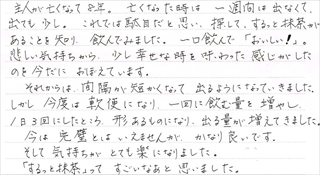 主人が亡くなって8年。亡くなった時は一週間は出なくて、
出ても少し。これでは駄目だと思い、探して、するっと抹茶が
あることを知り、飲んでみました。一口飲んで「おいしい!」。
悲しい気持ちから、少し幸せな時を味わった感じがした
のを今だにおぼえています。
それからは、間隔が短かくなって出るようになっていきました。
しかし今度は軟便になり、一回に飲む量を増やし、
1日3回にしたところ、形あるものになり、出る量が増えてきました。
今は完璧とはいえませんが、かなり良いです。
そして気持ちがとても楽になりました。
「するっと抹茶」ってすごいなあと思いました。